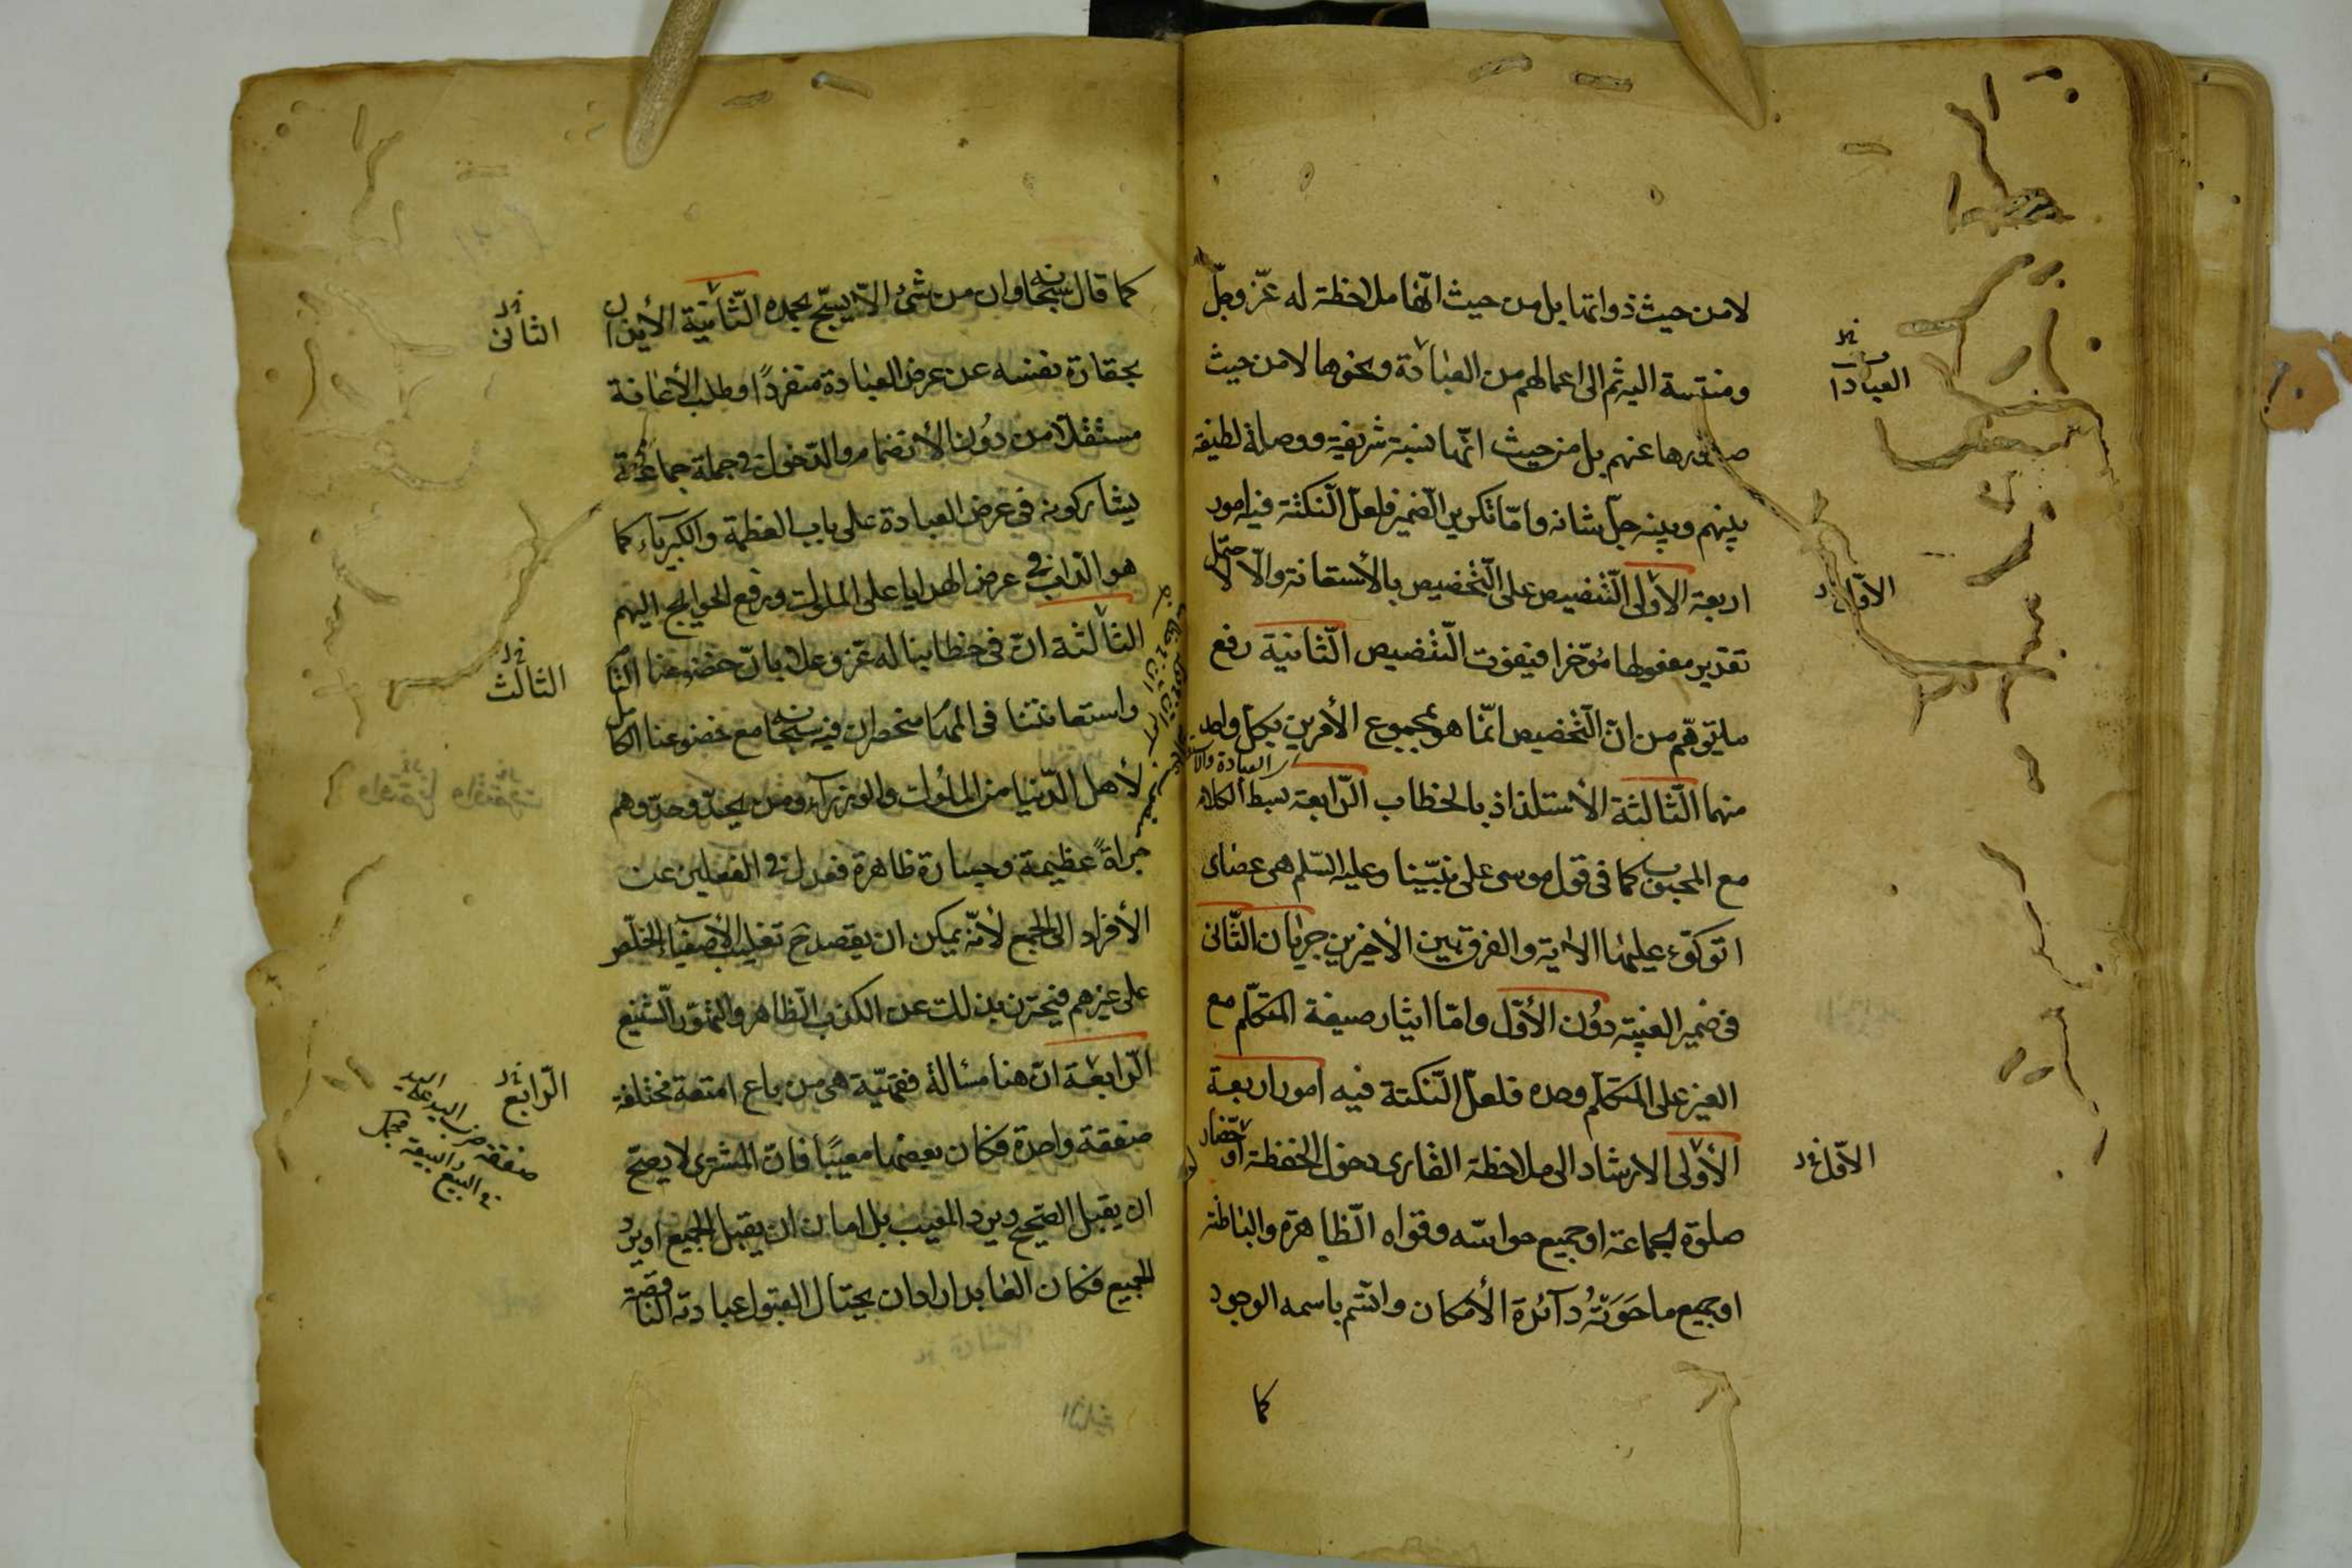 لا من حيث ذواتها بل من حيث انّها ملاحظة له عزّ وجلّ
ومنتسبة اليه ثم الى اعمالهم من العبادة ونحوها لا من حيث
صدورها عنهم بل من حيث انّها نسبة شريفة ووصلة لطيفة
بينهم وبينه جلّ شانه وامّا تكرير الضمير فلعلّ النّكتة فيه امور
اربعة الأولى التّنصيص على التّخصيص بالأستعانة والّا لاحتمل
تقدير مفعولها مؤخّرا فيفوت التّنصيص الثّانية رفع
ما يتوهّم من انّ التّخصيص انّما هو بمجموع الأمرين لا بكلّ واحد
منهما الثّالثة الأستلذاذ بالخطاب الرّابعة بسط الكلام
مع المحبوب كما فى قول موسى على نبيّنا وعليه السّلم هى عصاى
اتوكّؤ عليها الاية والفرق بين الأخيرين جريان الثّانى
فى ضمير الغيبة دون الأوّل وامّا ايثار صيغة المتكلّم مع
الغير على المتكلّم وحده فلعلّ النّكتة فيه امور اربعة
الأولى الارشاد الى ملاحظة القارى دخول الحفظة او حضّار
صلوة الجماعة او جميع حواسّه وقواه الظّاهرة والباطنة
او جميع ما حَوَتْهُ دآئرة الأمكان واتّسم باسمه الوجود
كما
العبادا
الاوّل
الاوّل
كما قال سبحانه وان من شئ الّا يسبّح بحمده الثّانية الأيذان
بحقارة نفسه عن عرض العبادة منفردًا وطلب الأعانة
مستقلّا من دُون الأنضمام والدّخول فى جملة جماعة
يشاركونه فى عرض العبادة على باب العظمة والكبرياء كما
هو الدّاب فى عرض الهدايا على الملوك ورفع الحوايج اليهم
الثالثة انّ فى خطابنا له عزّ وعلا بانّ خضوعنا التّا
واستعانتنا فى المهمّات منحصران فيه سبحانه مع خضوعنا الكامل
لأهل الدّنيا من الملوك والوزرآء ومن يحذو حذوهم
جراةً عظيمة وجسارة ظاهرة فعدل فى الفعلين عن
الأفراد الى الجمع لأنّه يمكن ان يقصد ح تغليب الأصفياء الخلّص
على غيرهم فيحترز بذلك عن الكذب الظّاهر والتهوّر الشّنيع
الرّابعة انّ هنا مسالة فقهيّة هى من باع امتعة مختلفة
صفقة واحدة فكان بعضها معيبًا فانّ المشترى لا يصحّ
ان يقبل الصّحيح ويردّ المعيب بل اما ان يقبل الجميع او يردّ
الجميع فكان العابد اراد ان يحتال لقبول عبادته النّاقصة
الثانى
الثالث
الرّابع
صفقة ضرب اليد على اليد
فى البيع والبيعة